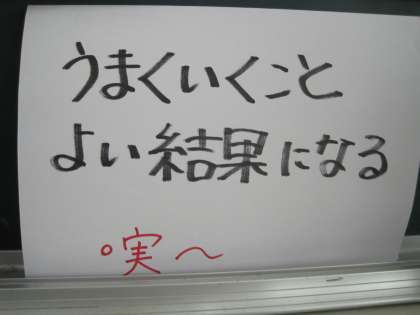 うまくいくこと
よい結果になる
。実〜